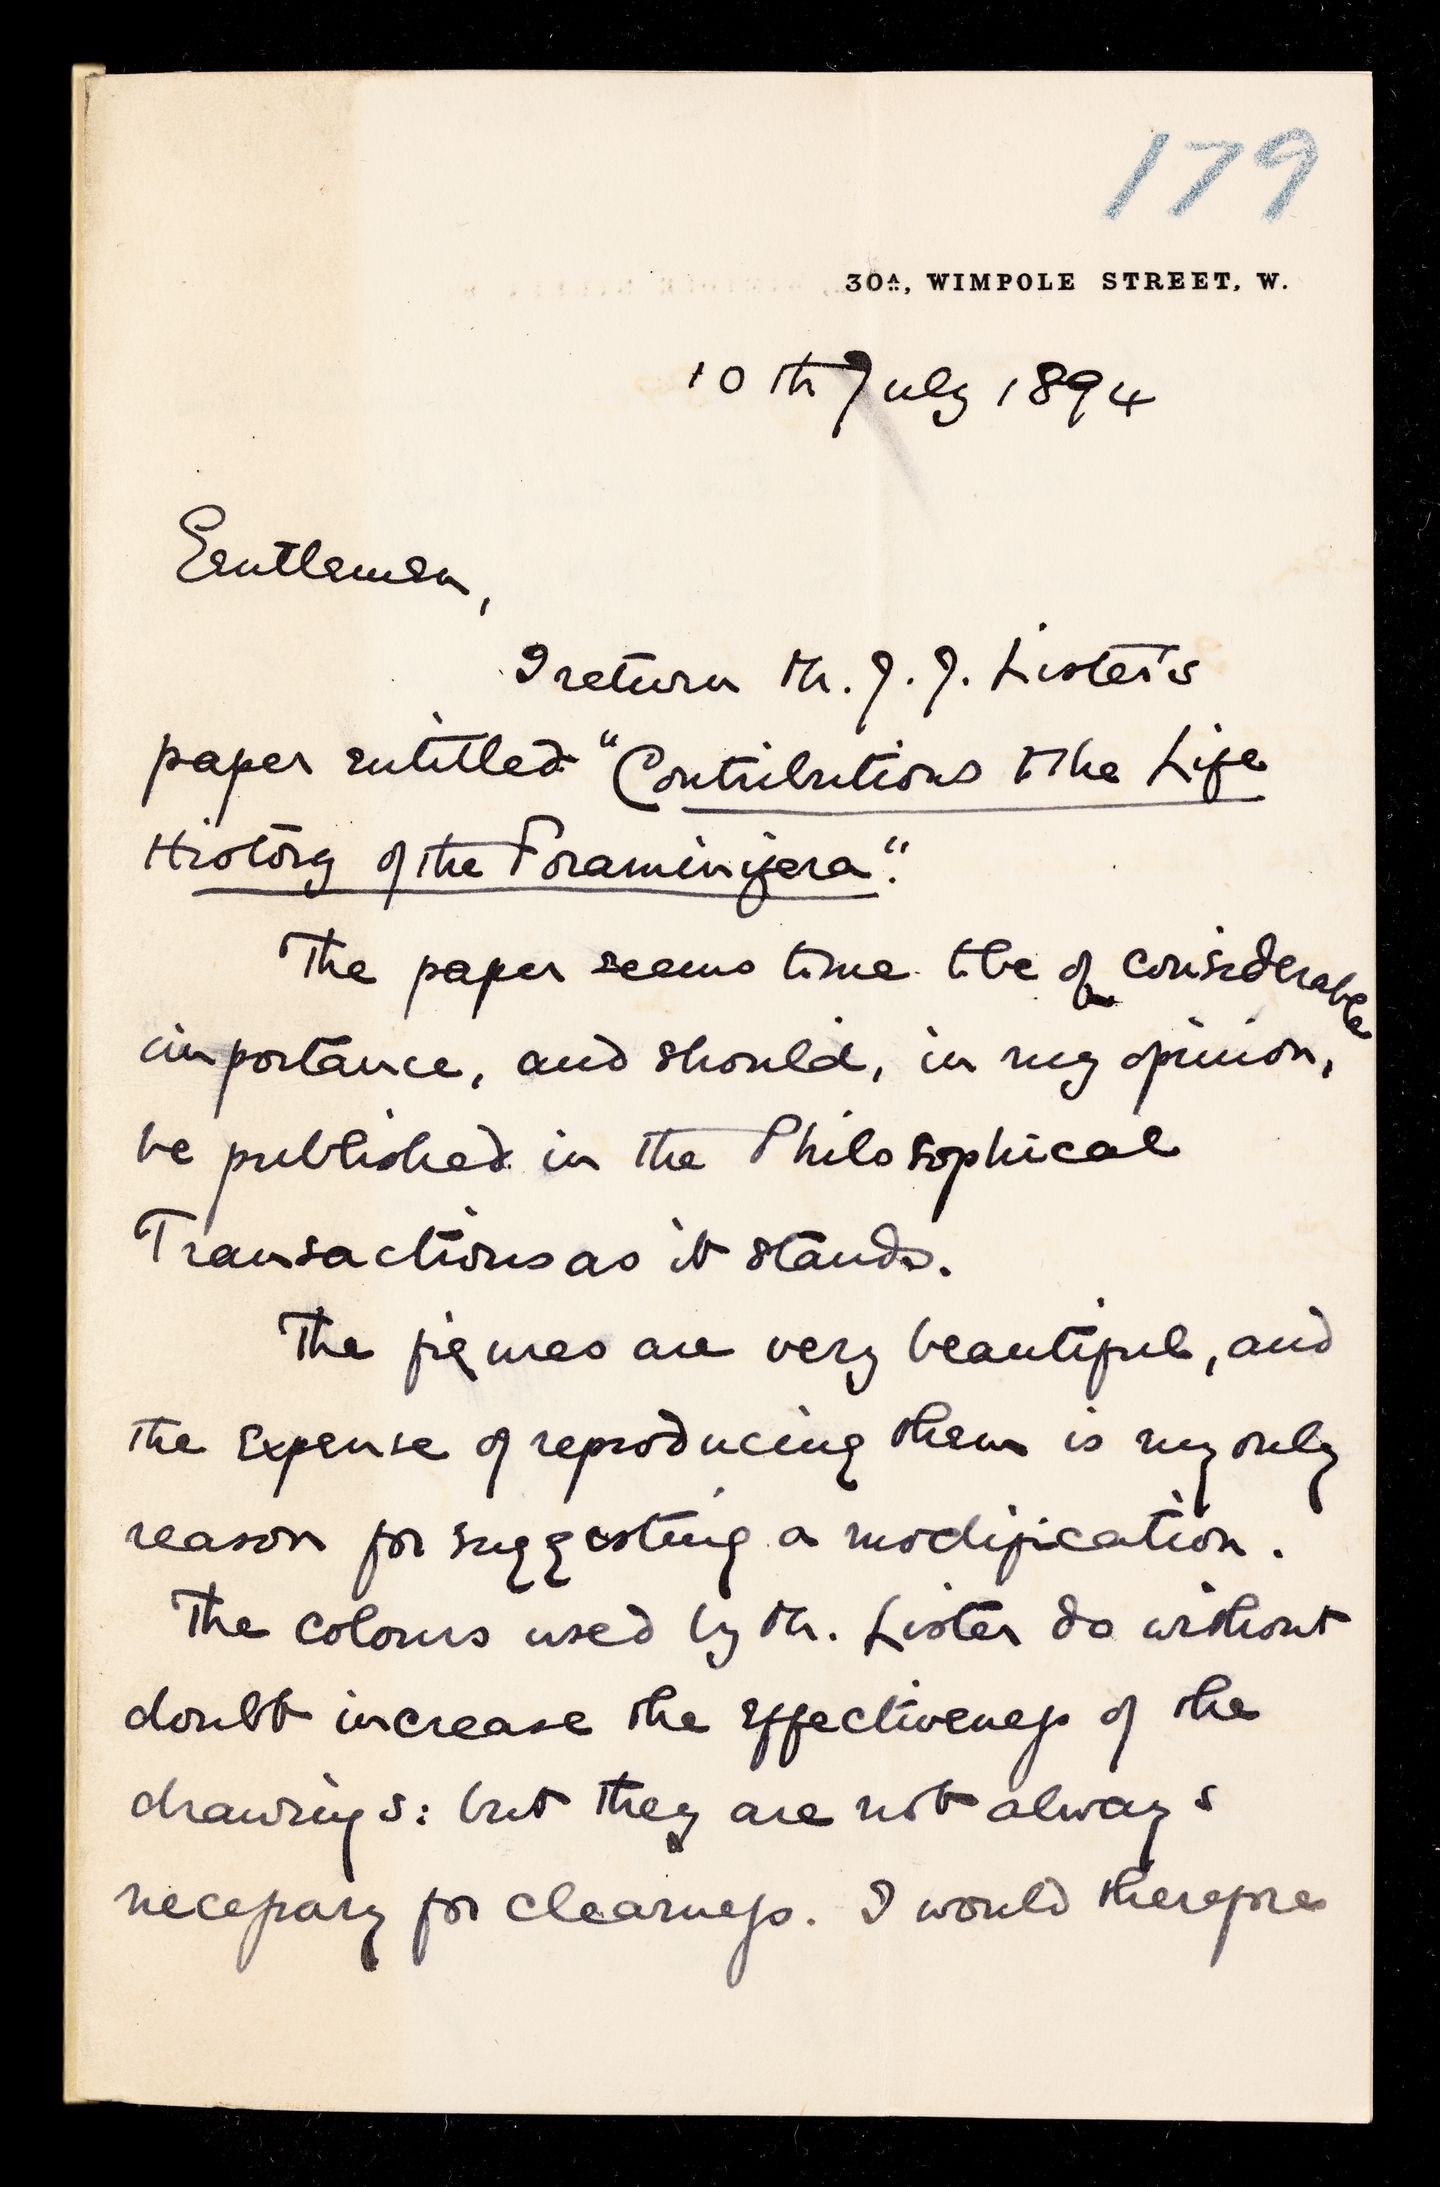 179
30A, WIMPOLE STREET, W.
10th July 1894
Gentlemen,
I return Mr. J. J. Lister's
paper entitled "Contributions to the Life
History of the Foraminifera".
The paper seems to me to be of considerable
importance, and should, in my opinion,
be published in the Philosophical
Transactions as it stands.
The figures are very beautiful, and
the expense of reproducing them is my only
reason for suggesting a modification.
The colours used by Mr. Lister do without
doubt increase the effectiveness of the
drawings: but they are not always
necessary for clearness. I would therefore